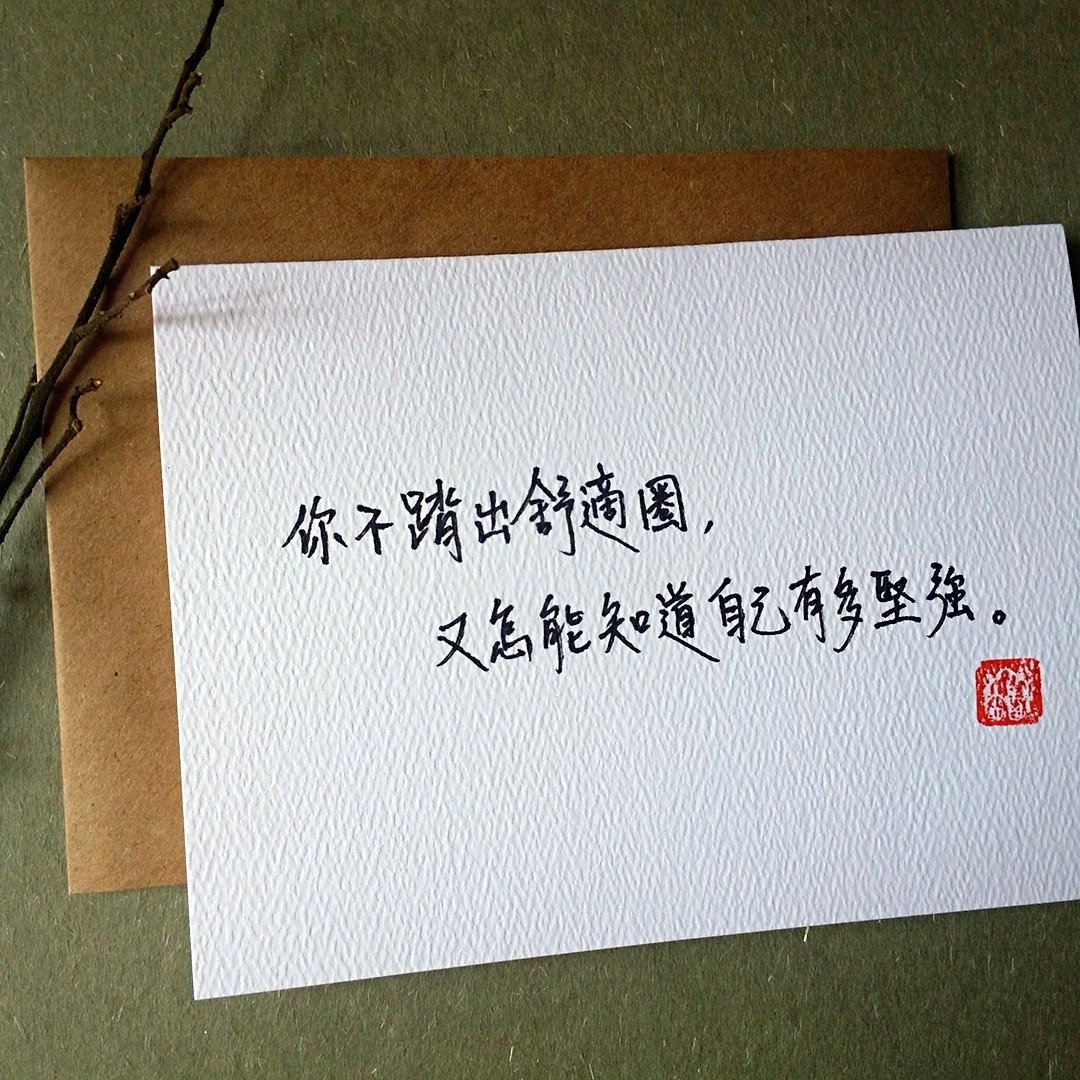 你不踏出舒適圈，
又怎能知道自己有多堅強。